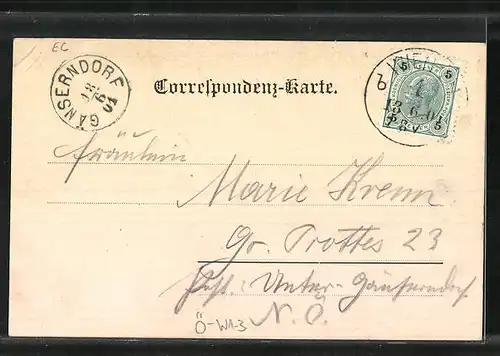 EC
GÄNSERNDORF
18
6
01
Correspondenz-Karte.
5 5
18.6.01
Fräulein
Marie Krenn
Gr. Prottes 23
Post: Unter-Gänserndorf
N. Ö.
Ö-WA-3